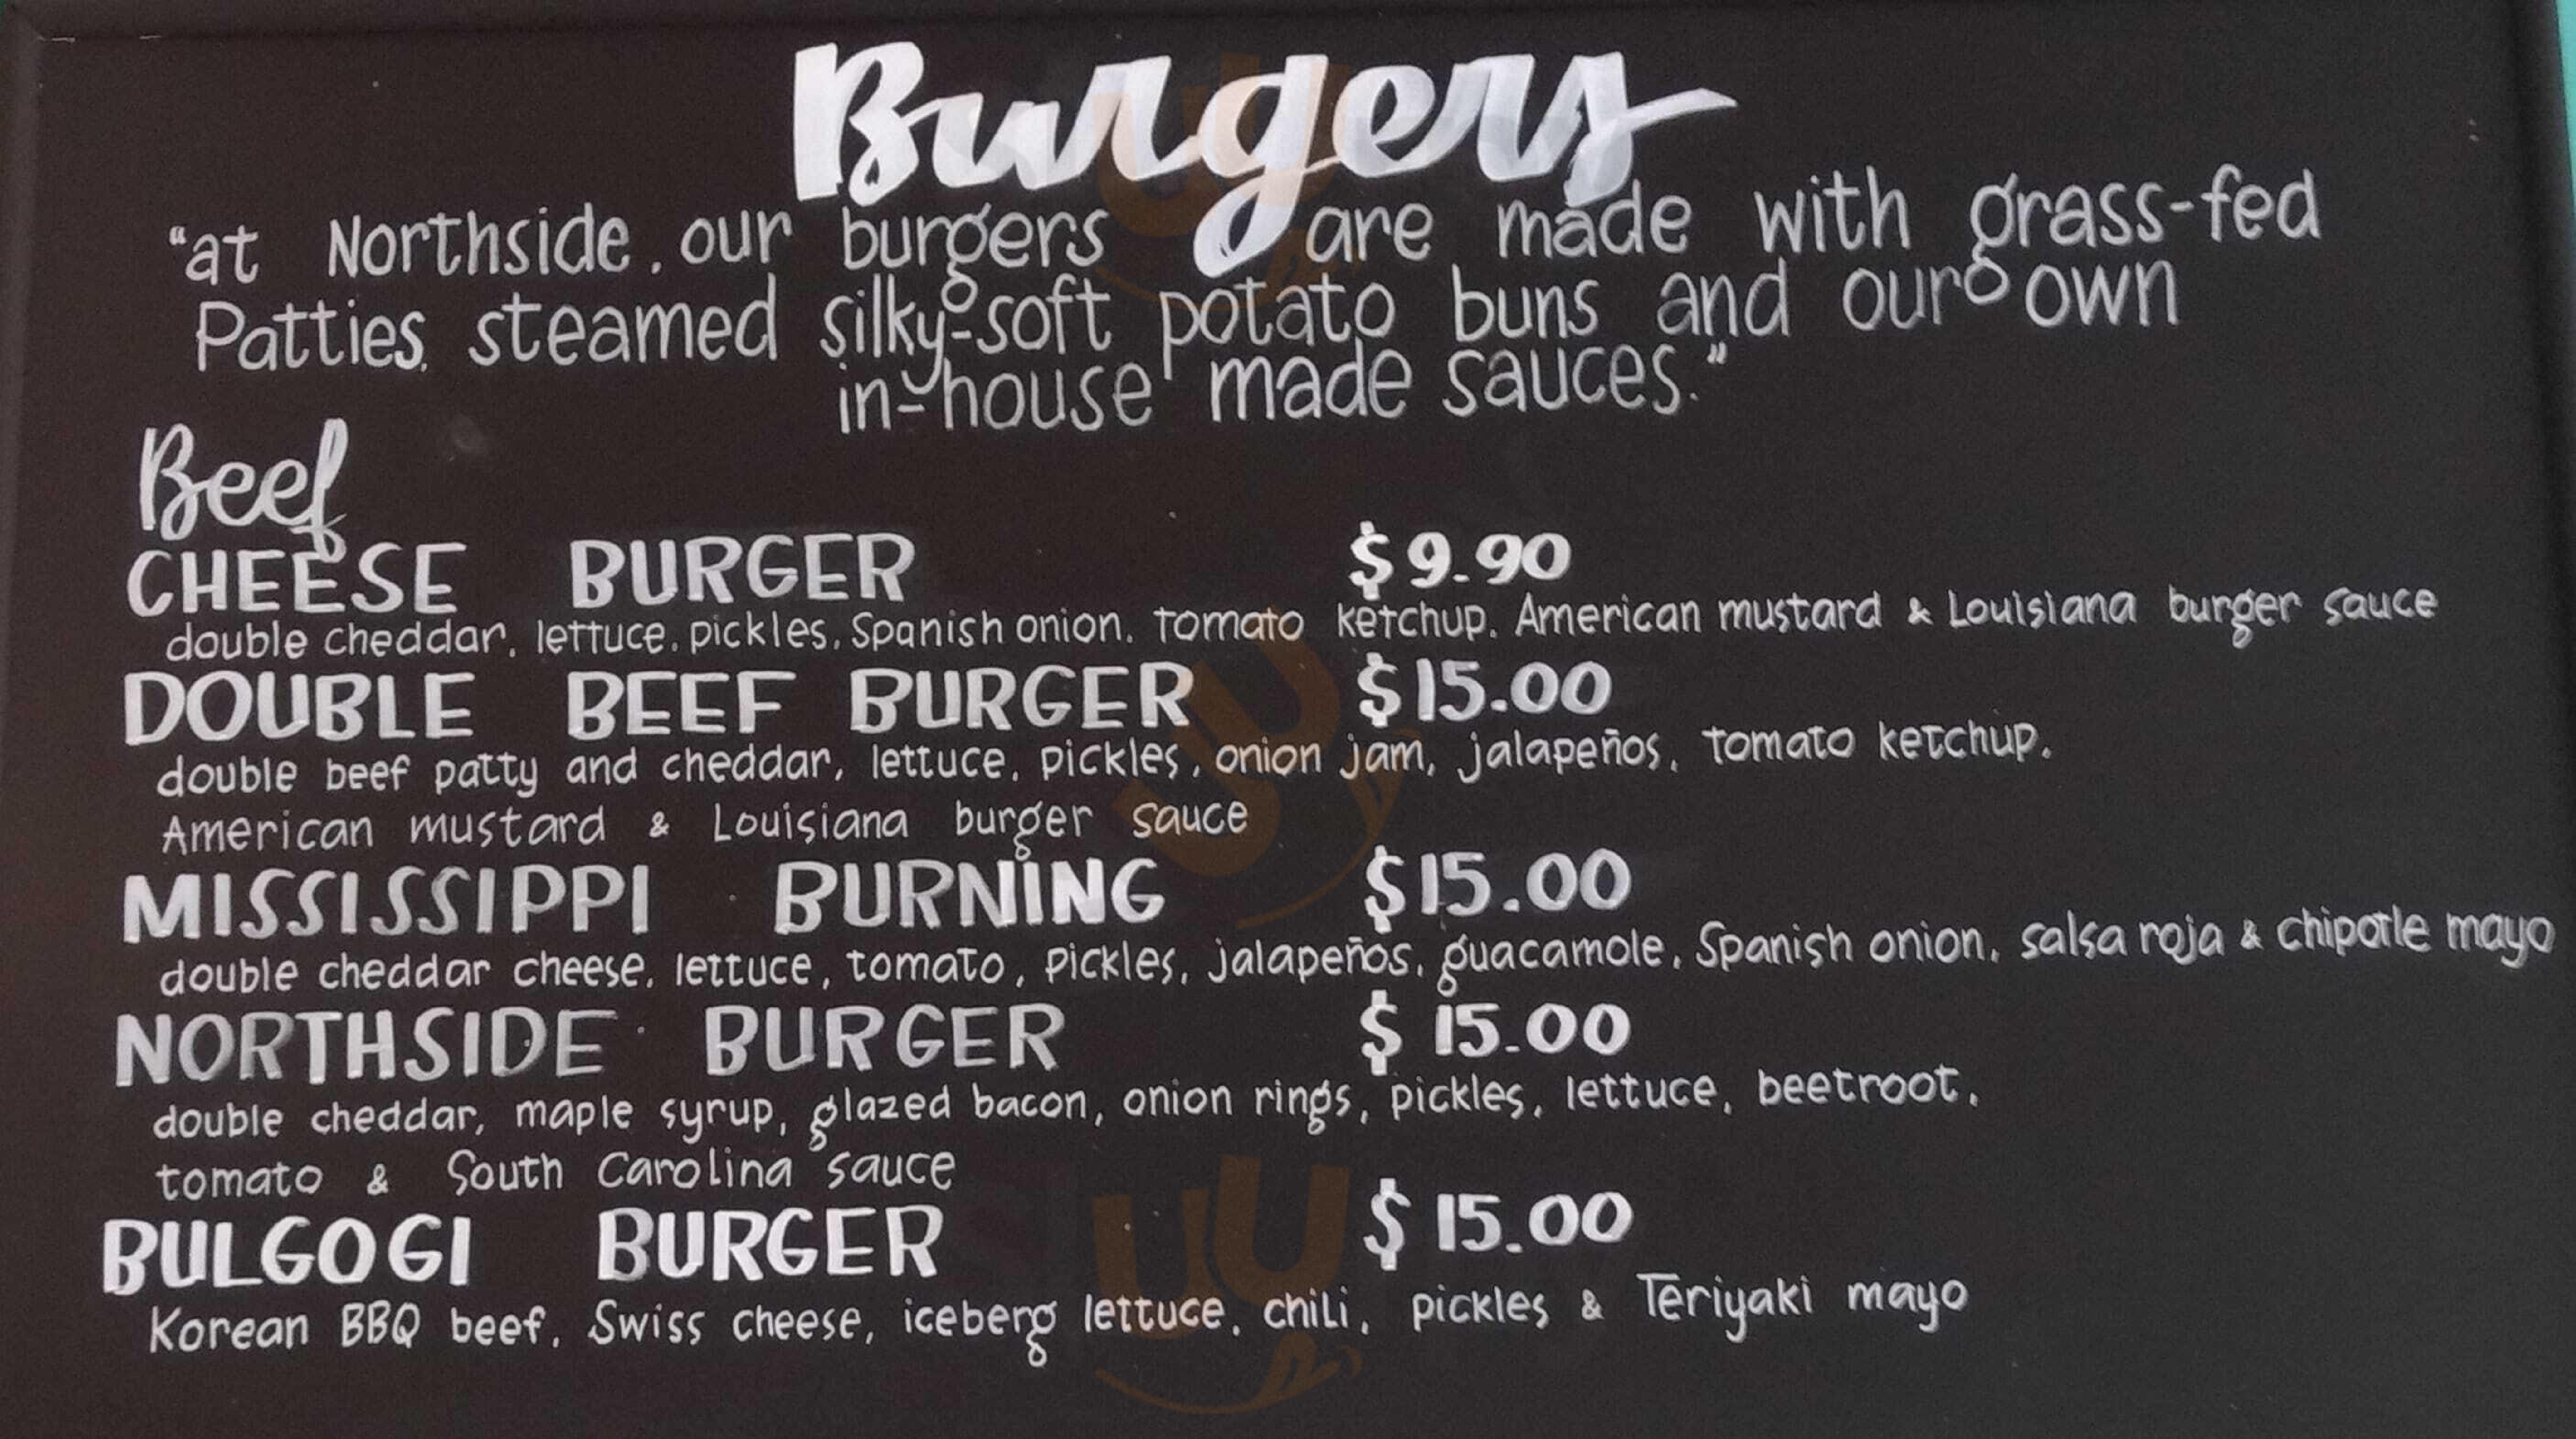 Burgers
"at Northside, our burgers are made with grass-fed
Patties, steamed silky-soft potato buns and our own
in-house made sauces."
Beef
CHEESE BURGER $9.90
double cheddar, lettuce, pickles, Spanish onion, tomato ketchup, American mustard & Louisiana burger sauce
DOUBLE BEEF BURGER $15.00
double beef patty and cheddar, lettuce, pickles, onion jam, jalapeños, tomato ketchup,
American mustard & Louisiana burger sauce
MISSISSIPPI BURNING $15.00
double cheddar cheese, lettuce, tomato, pickles, jalapeños, guacamole, Spanish onion, salsa roja & chipotle mayo
NORTHSIDE BURGER $15.00
double cheddar, maple syrup, glazed bacon, onion rings, pickles, lettuce, beetroot,
tomato & South Carolina sauce
BULGOGI BURGER $15.00
Korean BBQ beef, Swiss cheese, iceberg lettuce, chili, pickles & Teriyaki mayo